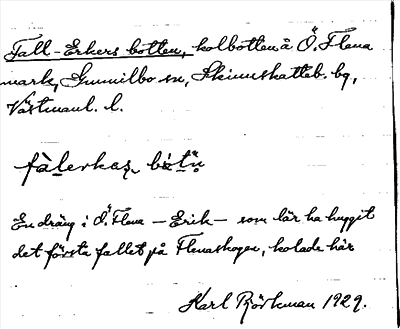 Fall-Erkers botten, kolbotten å Ö. Flena
mark, Gunnilbo sn, Skinnskatteb. bg,
Västmanl. l.
fàlerkas bòtn
En dräng i Ö. Flena — Erik — som lär ha huggit
det första fallet på Flenaskogen, kolade här
Karl Björkman 1929.